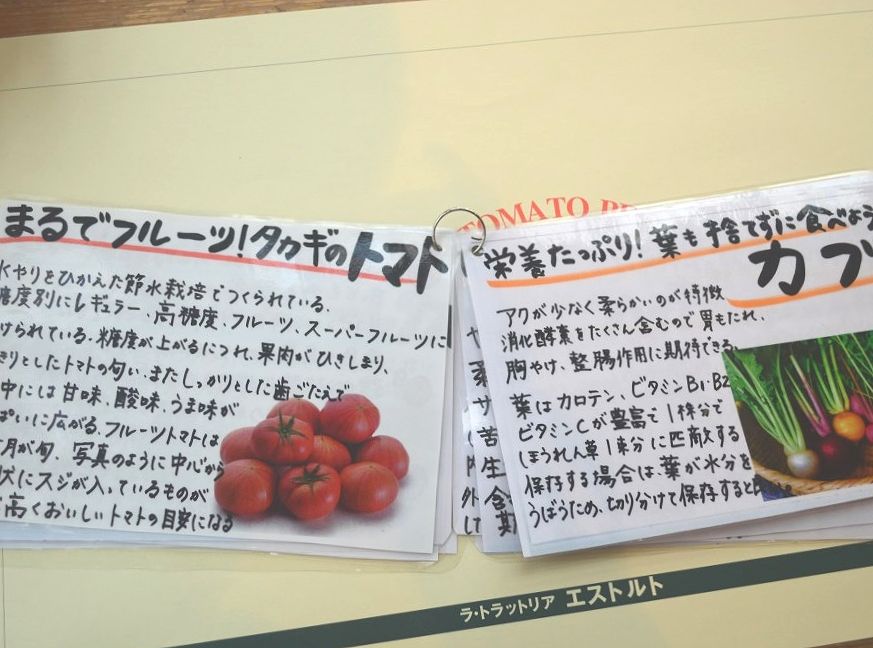 まるでフルーツ!タカギのトマト
水やりをひかえた節水栽培でつくられている。
糖度別にレギュラー、高糖度、フルーツ、スーパーフルーツに
けられている。糖度が上がるにつれ、果肉がひきしまり、
きりとしたトマトの匂い、またしっかりとした歯ごたえで
中には甘味、酸味、うま味が
ぱいに広がる。フルーツトマトは
月が旬。写真のように中心から
状にスジが入っているものが
高くおいしいトマトの目安になる
TOMATO
栄養たっぷり!葉も捨てずに食べよう
カブ
アクが少なく柔らかいのが特徴
消化酵素をたくさん含むので胃もたれ、
胸やけ、整腸作用に期待できる。
葉はカロテン、ビタミンB1・B2
ビタミンCが豊富で1株分で
ほうれん草1束分に匹敵する
保存する場合は、葉が水分を
うばうため、切り分けて保存すると
ラ・トラットリア エストルト